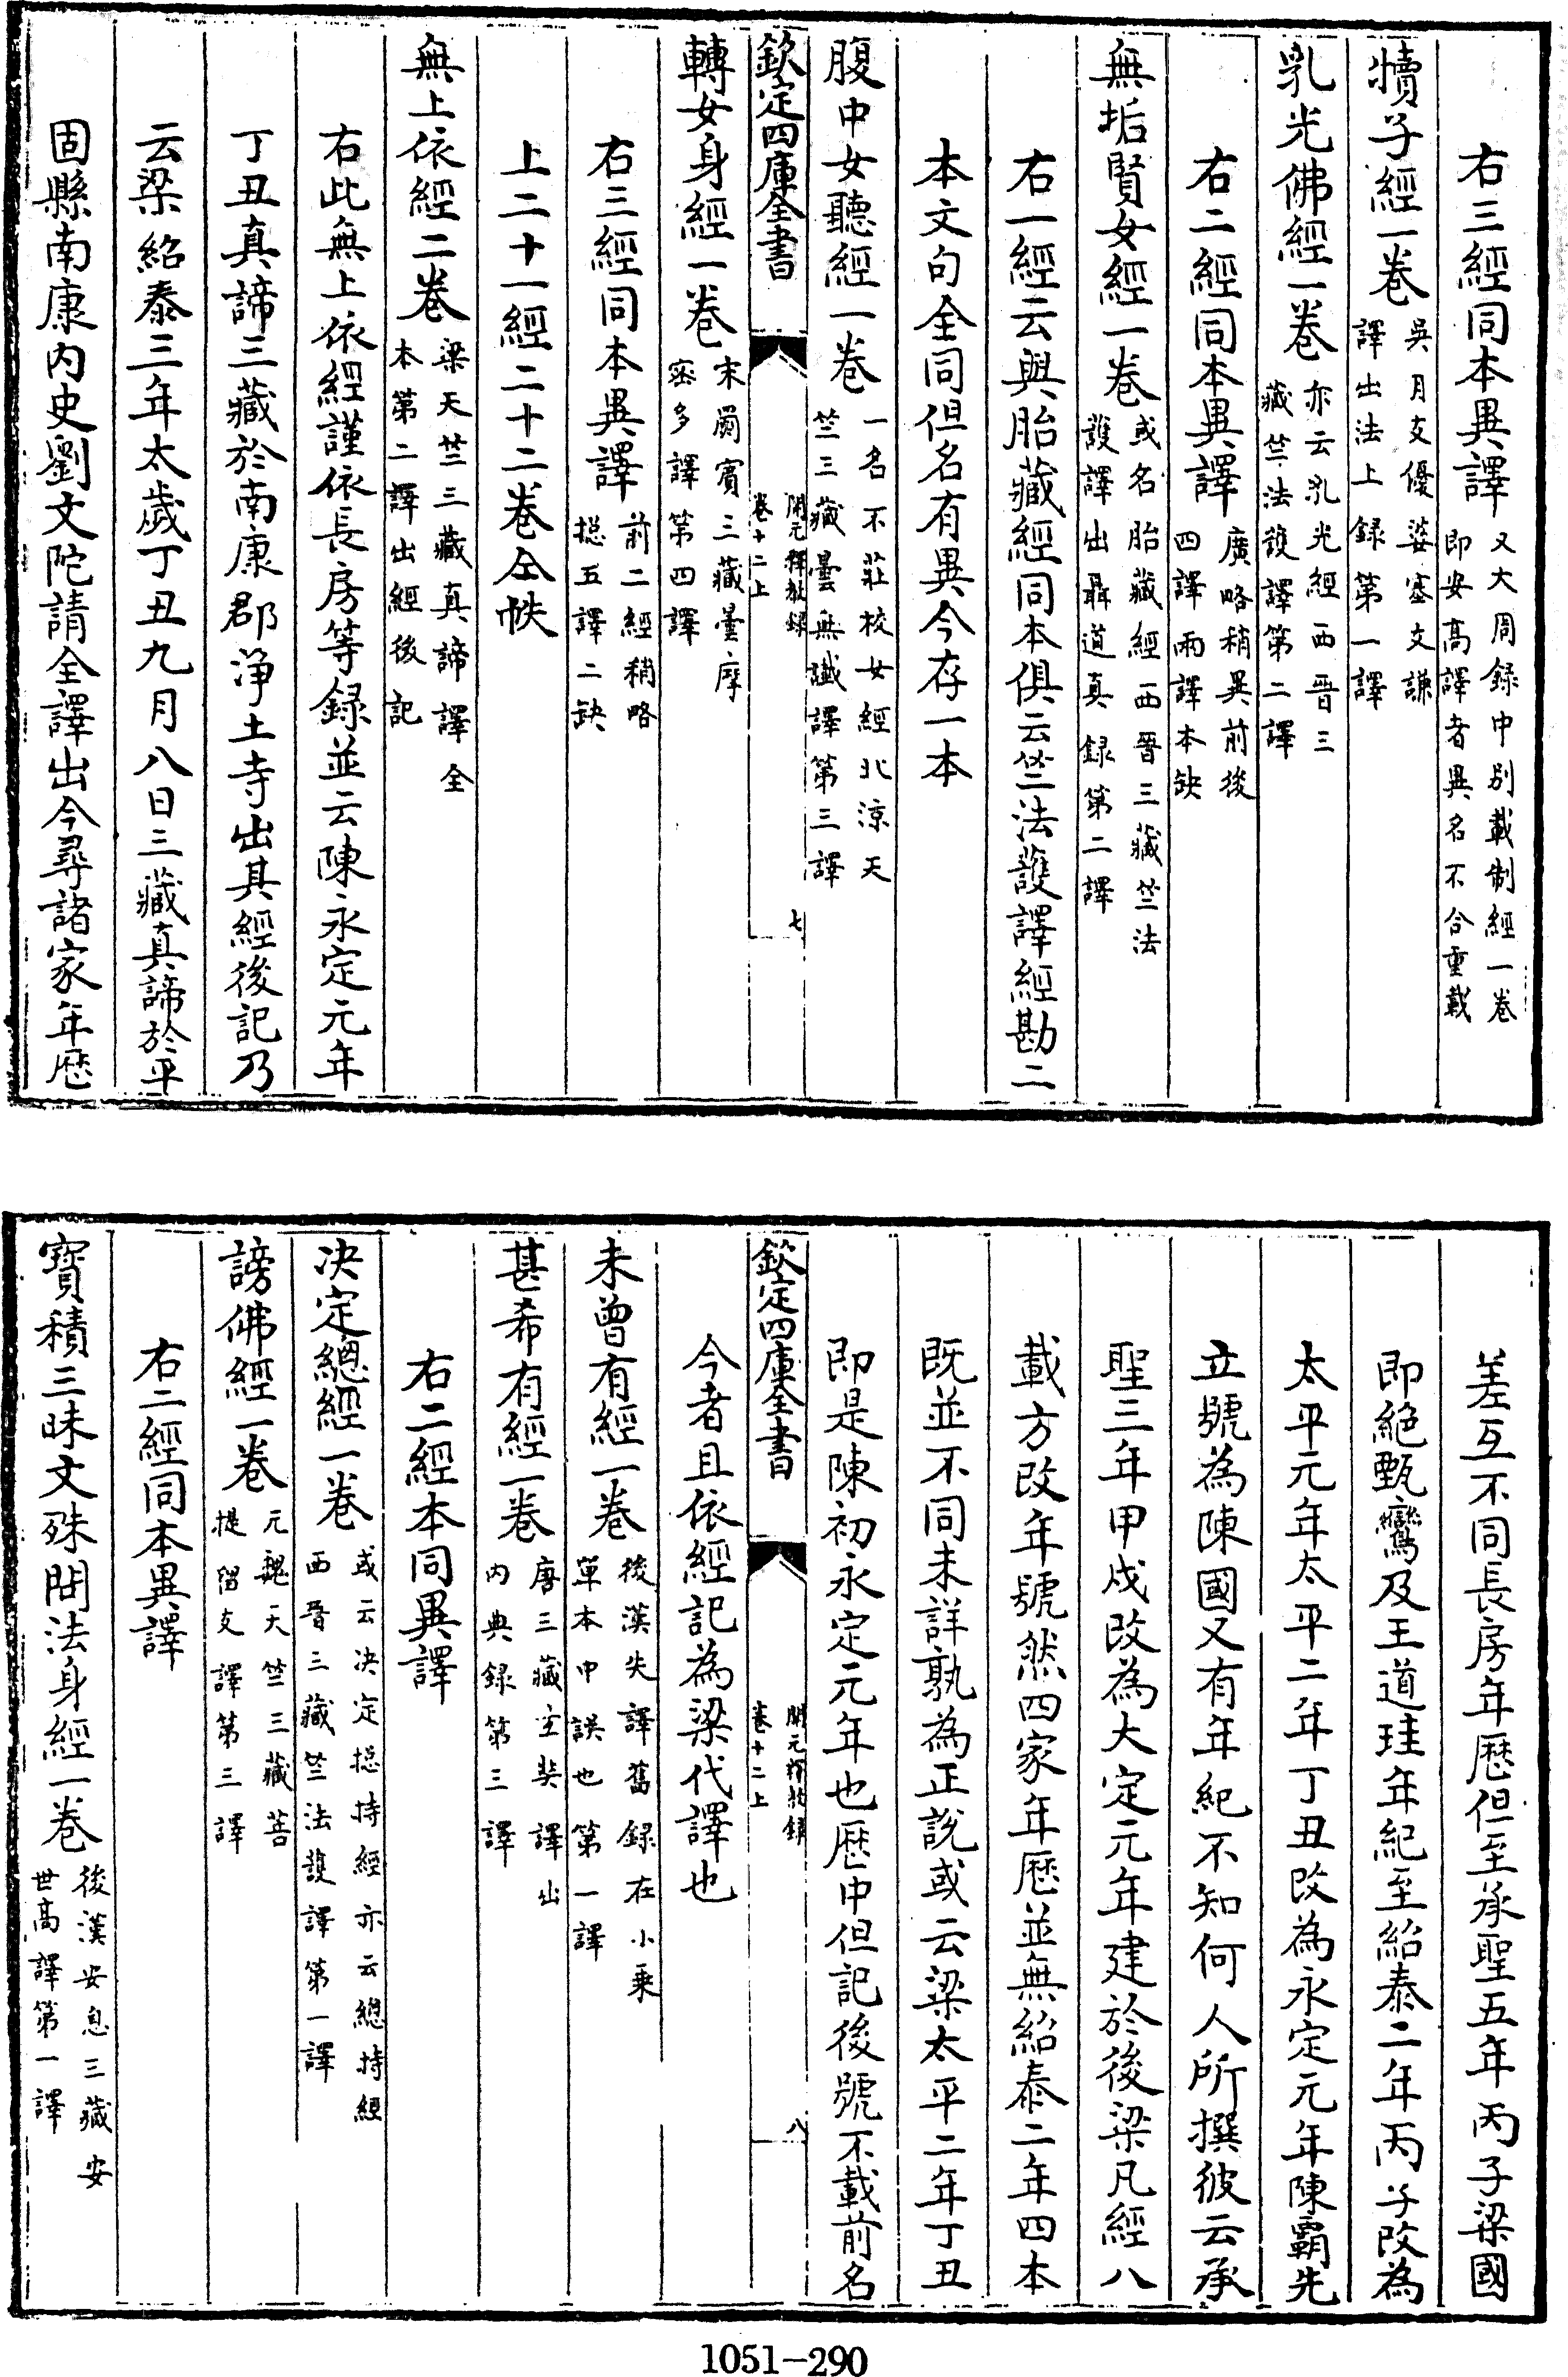 右三經同本異譯又大周録中别載制經一卷即安高譯者異名不合重載
犢子經一卷吳月支優婆塞支謙譯出法上録第一譯
乳光佛經一卷亦云乳光經西晋三藏竺法護譯第二譯
右二經同本異譯廣略稍異前後四譯兩譯本缺
無垢賢女經一卷或名胎藏經西晋三藏竺法護譯出聶道真録第二譯
右一經云與胎藏經同本俱云竺法護譯經勘二
本文句全同但名有異今存一本
腹中女聽經一卷一名不莊校女經北凉天竺三藏曇無讖譯第三譯
欽定四庫全書
開元釋教録
卷十二上
七
轉女身經一卷宋罽賓三藏曇摩宻多譯第四譯
右三經同本異譯前二經稍略㧾五譯二缺
上二十一經二十二卷仝帙
無上依經二卷梁天竺三藏真諦譯全本第二譯出經後記
右此無上依經謹依長房等録並云陳永定元年
丁丑真諦三藏於南康郡淨土寺出其經後記乃
云梁紹泰三年太歲丁丑九月八日三藏真諦於平
固縣南康内史劉文陀請全譯出今尋諸家年歴
差互不同長房年歴但至承聖五年丙子梁國
即絶甄鸞及王道珪年紀至紹泰二年丙子改為
太平元年太平二年丁丑改為永定元年陳霸先
立號為陳國又有年紀不知何人所撰彼云承
聖三年甲戌改為大定元年建於後梁凡經八
載方改年號然四家年歴並無紹泰二年四本
既並不同未詳孰為正説或云梁太平二年丁丑
即是陳初永定元年也歴中但記後號不載前名
欽定四庫全書
開元釋教録
卷十二上
八
今者且依經記為梁代譯也
未曽有經一卷後漢失譯舊録在小乗單本中誤也第一譯
甚希有經一卷唐三藏玄奘譯出内典録第三譯
右二經本同異譯
决定總經一卷或云决定㧾持經亦云總持經西晋三藏竺法護譯第一譯
謗佛經一卷元魏天竺三藏菩提留支譯第三譯
右二經同本異譯
寳積三昧文殊問法身經一卷後漢安息三藏安世高譯第一譯
1051-290